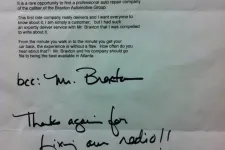 It is a rare opportunity to find a professional auto repair company
of the caliber of the Braxton Automotive Group.
This first rate company really delivers and I want everyone to
know about it. I am simply a customer, but I had such
an expertly deliver service with Mr. Braxton that I was compelled
to write about it.
From the minute you walk in to the minute you get your
car back, the experience is without a flaw. How often do you
hear about that? Mr. Braxton and his company should go
to being the best available in Atlanta.
bcc: Mr. Braxton
Thanks again for
fixing our radio!!